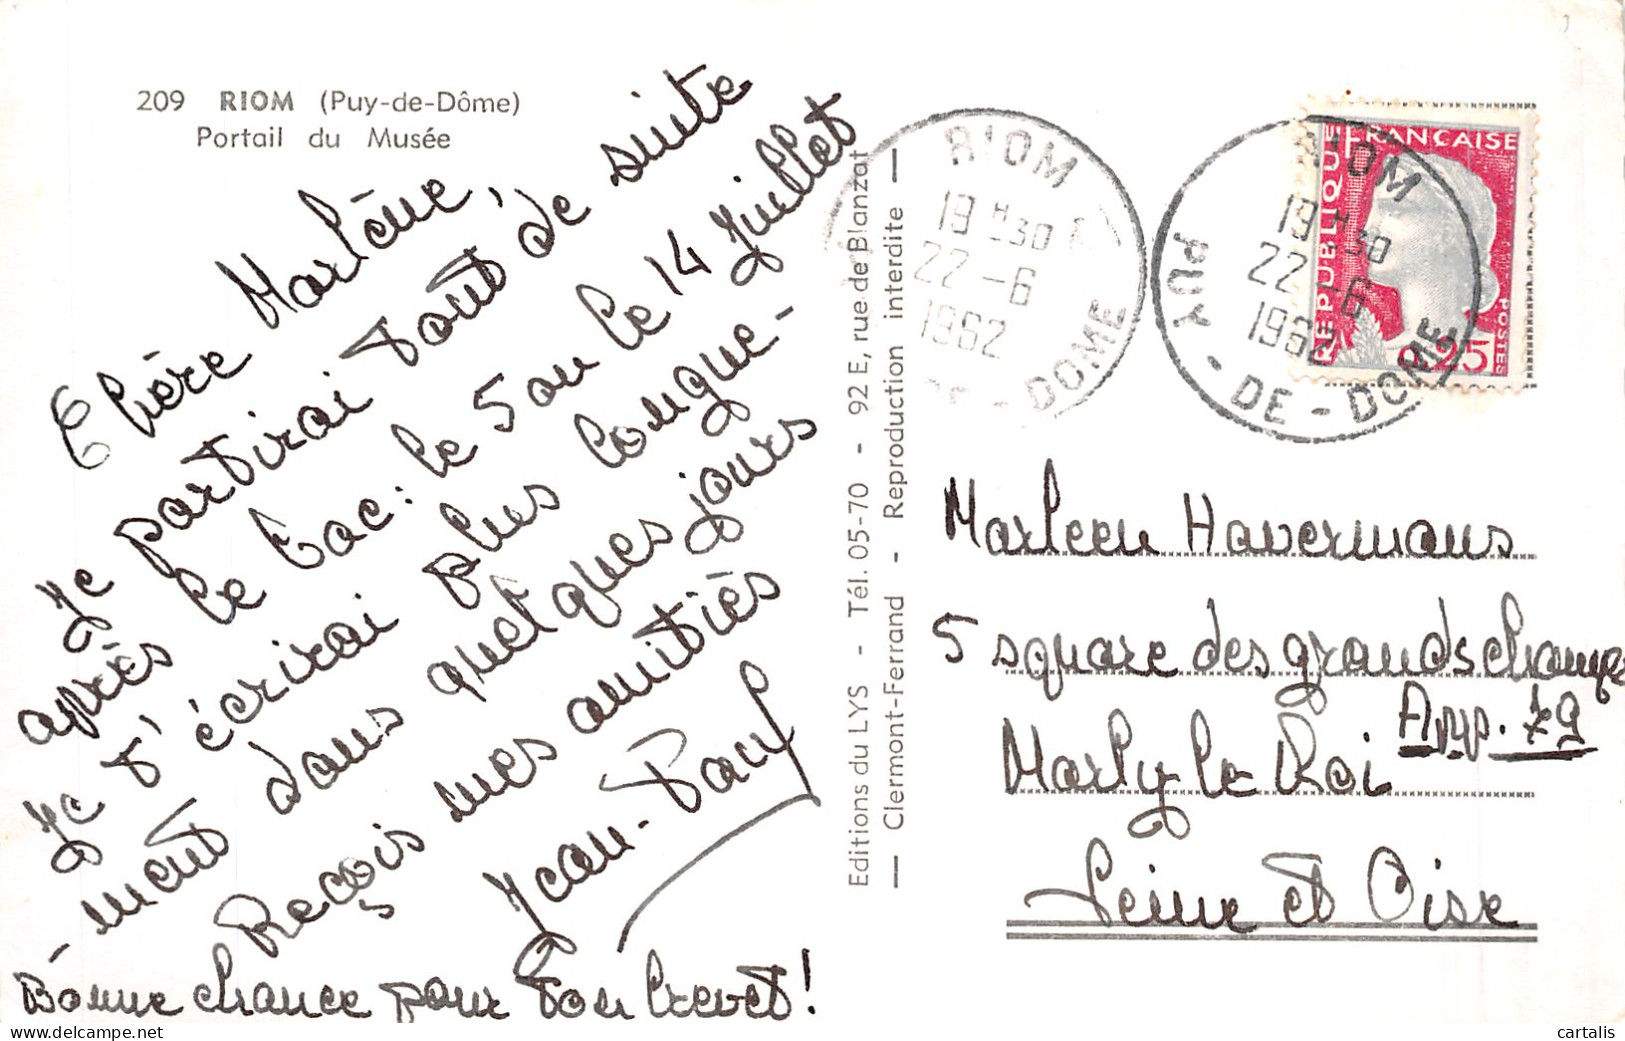 209 RIOM (Puy-de-Dôme)
Portail du Musée
Chère Marlène,
Je partirai tout de suite
après le bac : le 5 ou le 14 Juillet
Je t'écrirai plus longue-
-ment dans quelques jours
Reçois mes amitiés
Jean-Paul
Bonne chance pour ton brevet !
Editions du LYS - Tél. 05-70 - 92 E, rue de Blanzat
— Clermont-Ferrand - Reproduction interdite —
RIOM
19 H 30
22 -6
1962
DE - DOME
RIOM
19 H 30
22 -6
1962
PUY - DE - DOME
REPUBLIQUE FRANÇAISE
POSTES
0,25
Marleen Havermans
5 square des grands champs
App. 79
Marly le Roi
Seine et Oise
cartalis